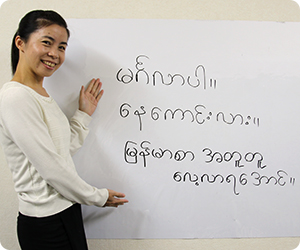 မင်္ဂလာပါ။
နေကောင်းလား။
မြန်မာစာ အတူတူ
လေ့လာရအောင်။